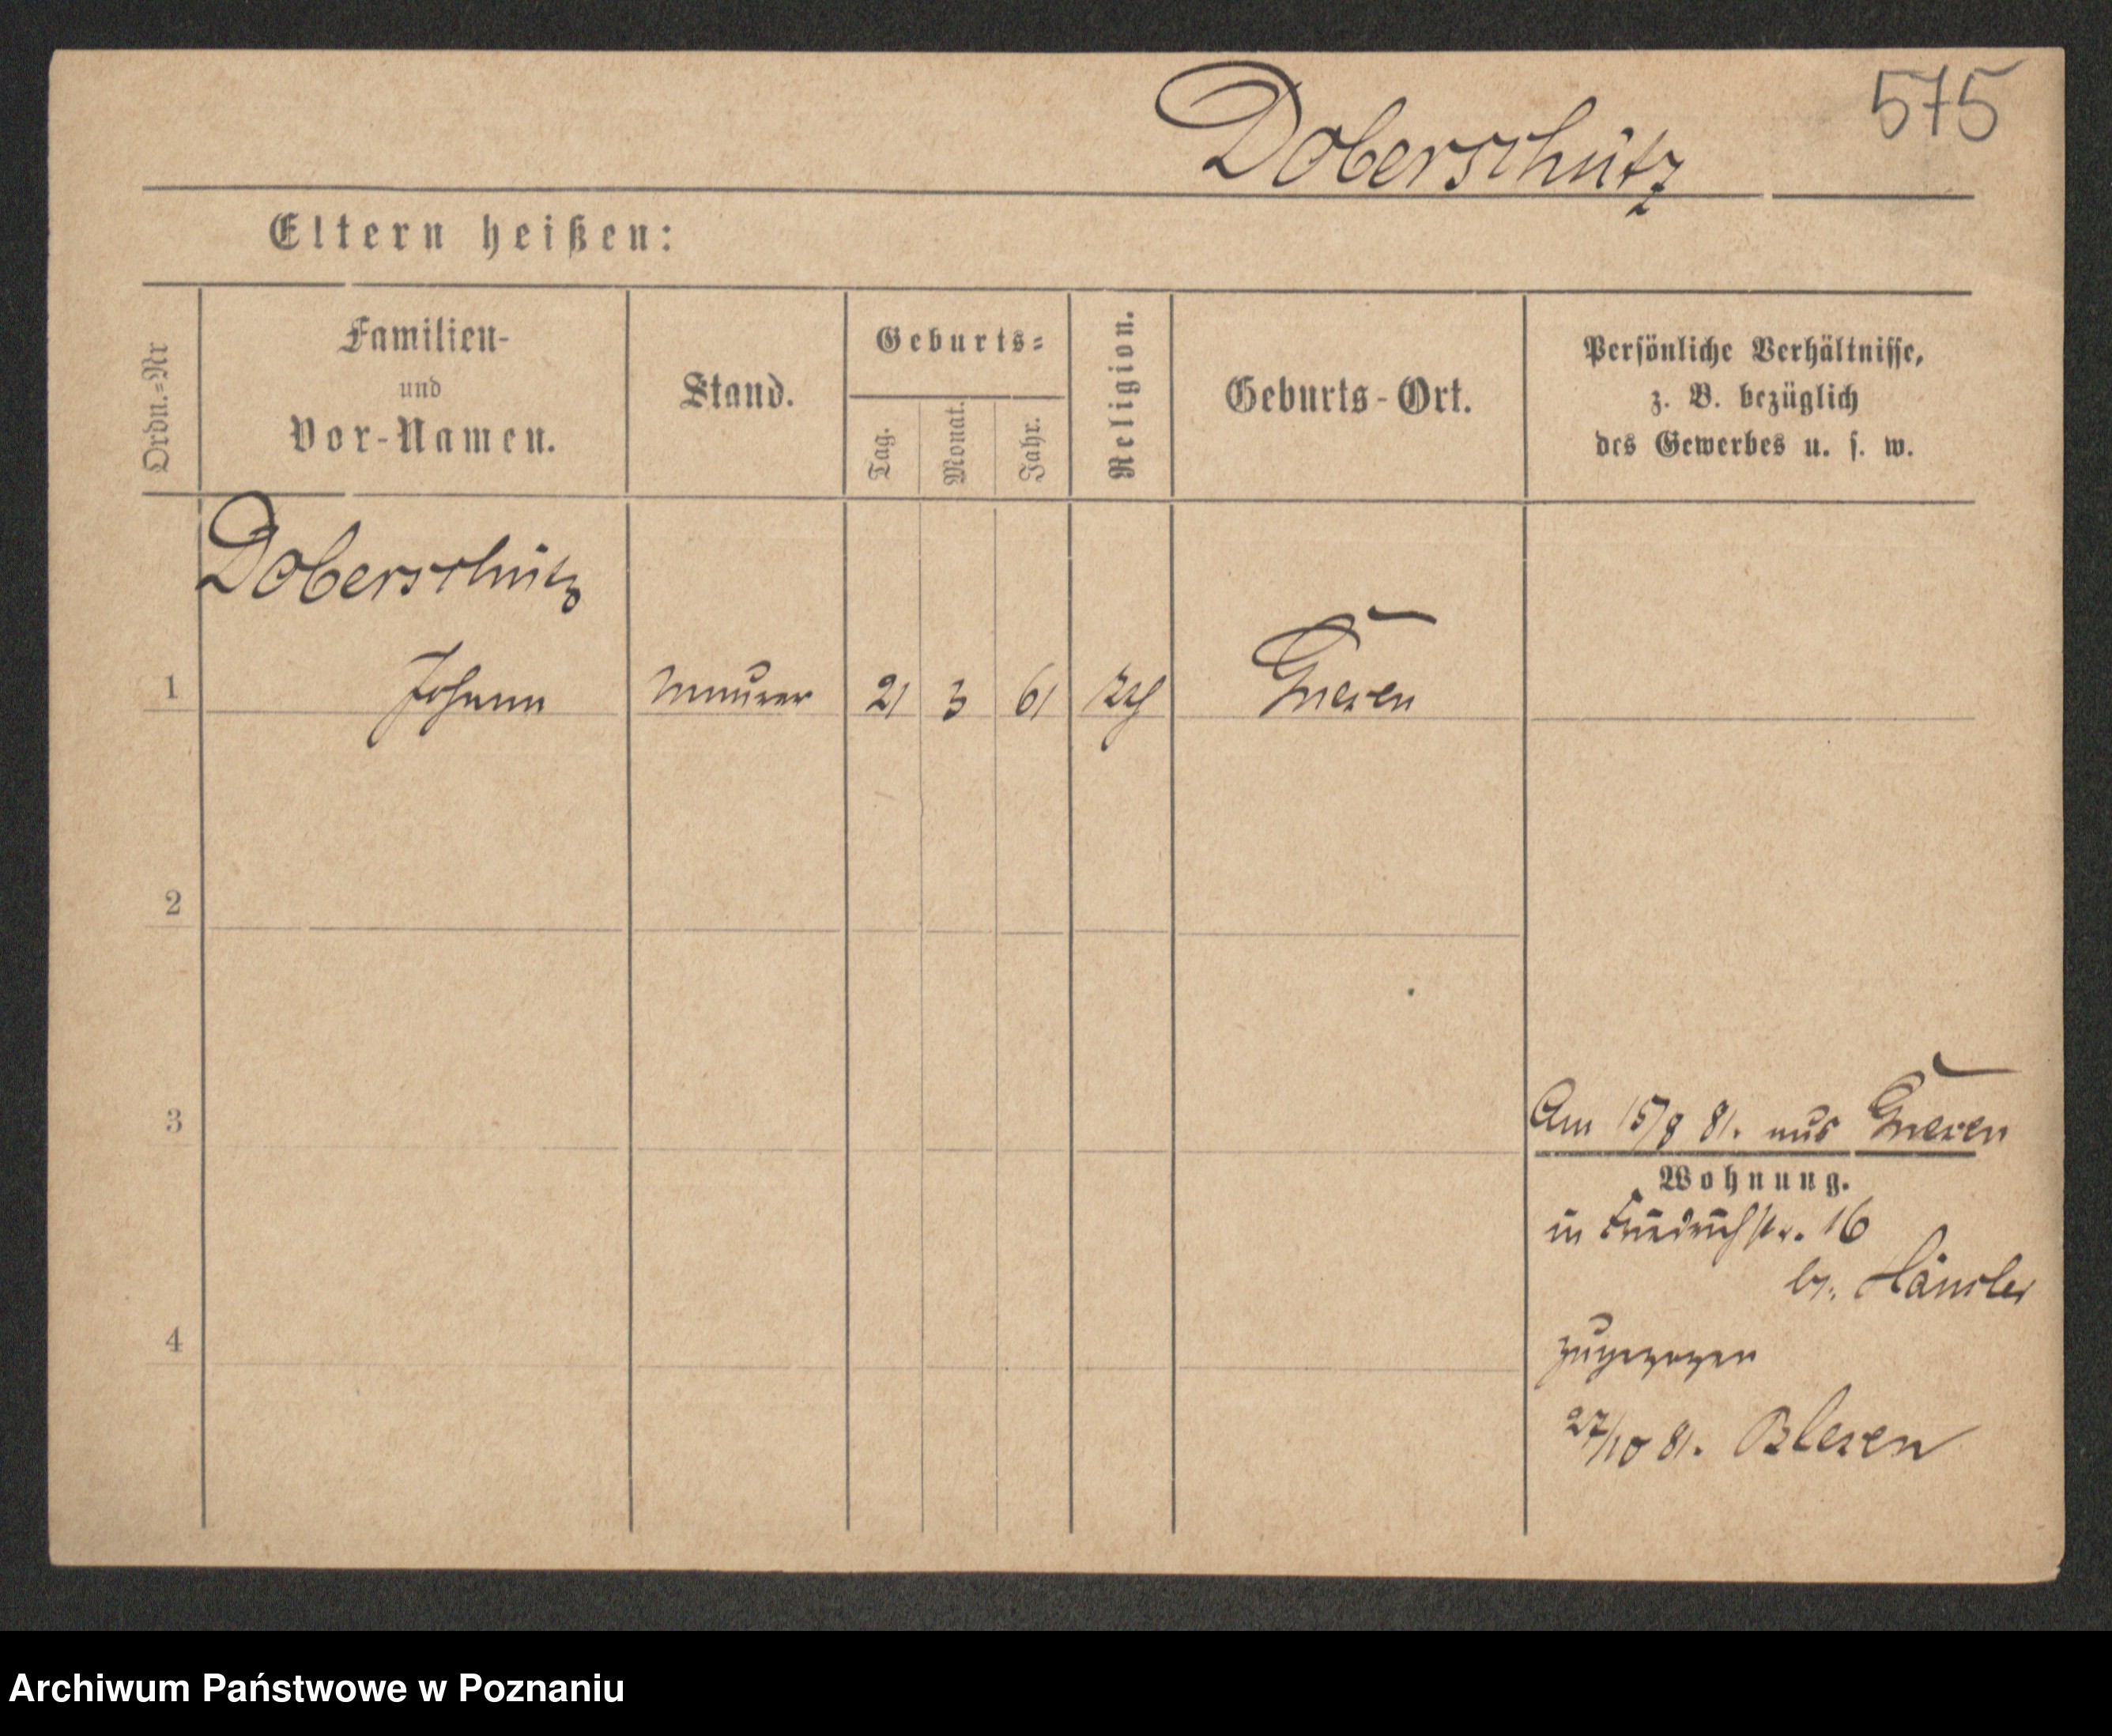 575
Doberschütz
Eltern heißen:
Ordn.=Nr
Familien-
und
Vor-Namen.
Stand.
Geburts=
Tag.
Monat.
Jahr.
Religion.
Geburts-Ort.
Persönliche Verhältnisse,
z. B. bezüglich
des Gewerbes u. s. w.
Doberschütz
1 Johann Maurer 21 3 61 Gnesen
2
3
Am 15/8 81. aus Gnesen
Wohnung.
in Friedrichstr. 16
b.
zugezogen
4
27/10 81. Blesen
Archiwum Państwowe w Poznaniu